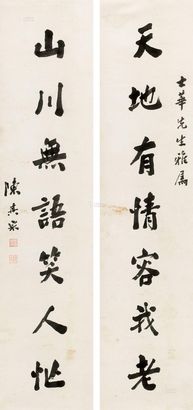 士華先生雅屬
天地有情容我老
山川無語笑人忙
陳